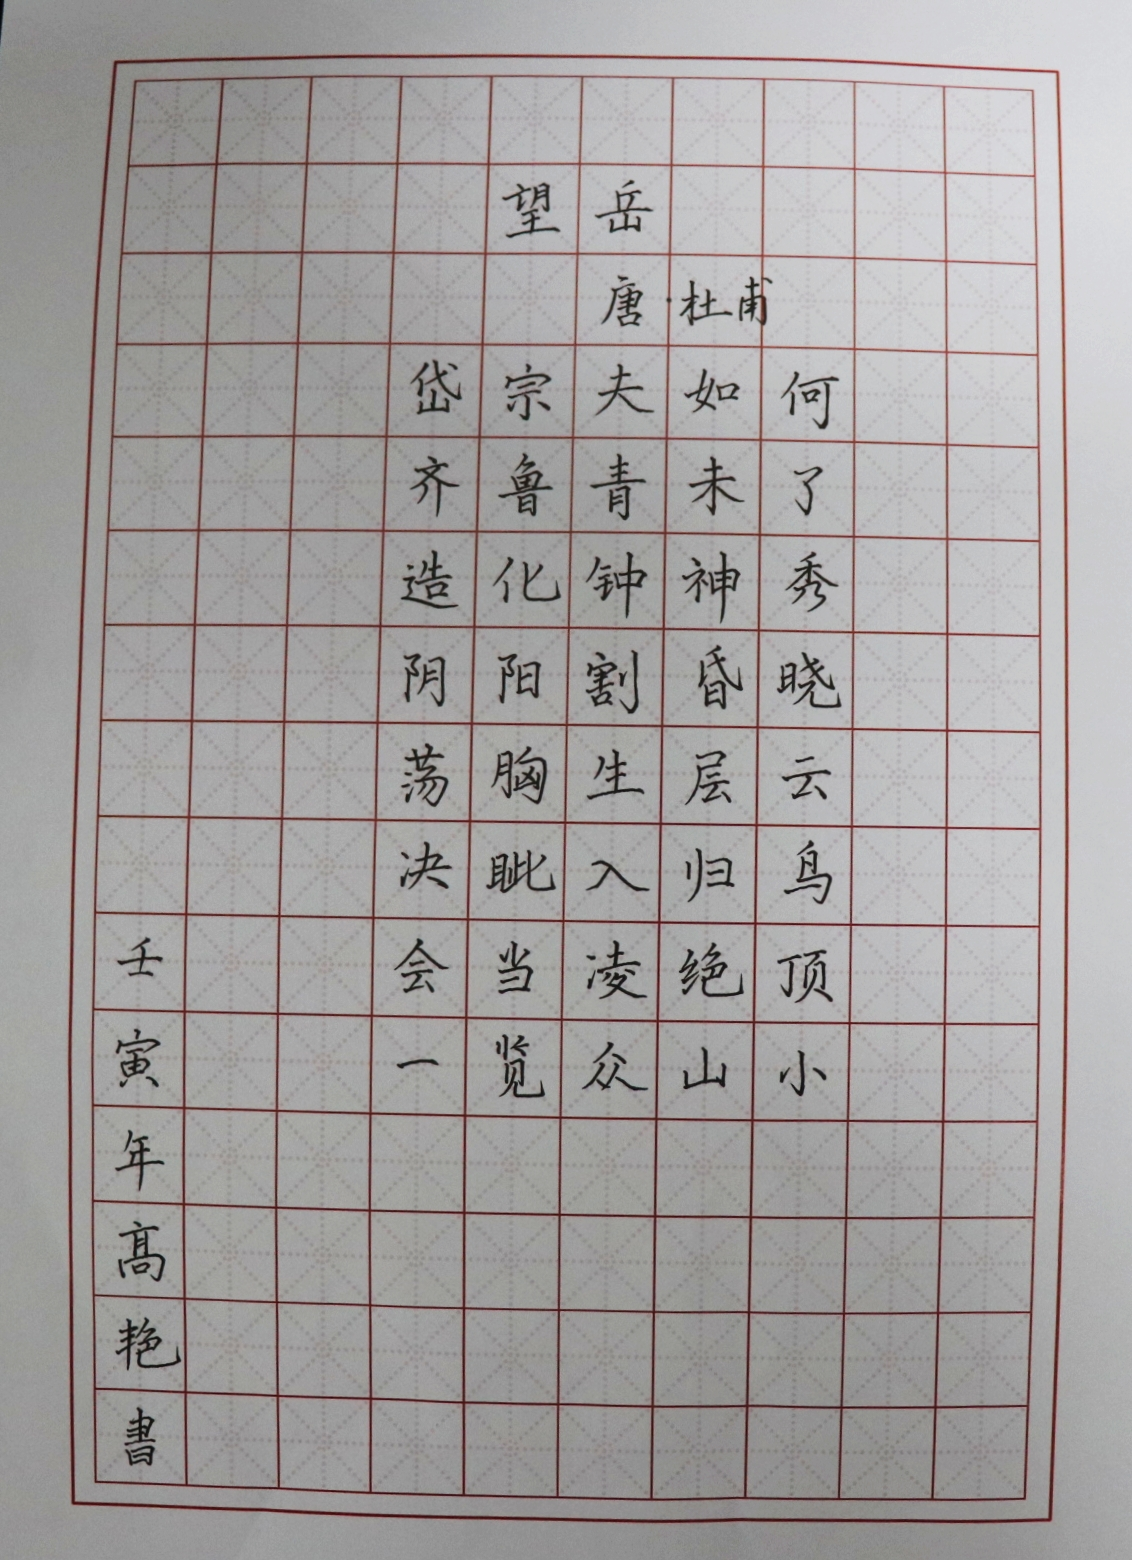 望岳
唐·杜甫
岱宗夫如何
齐鲁青未了
造化钟神秀
阴阳割昏晓
荡胸生层云
决眦入归鸟
会当凌绝顶
一览众山小
壬寅年高艳書